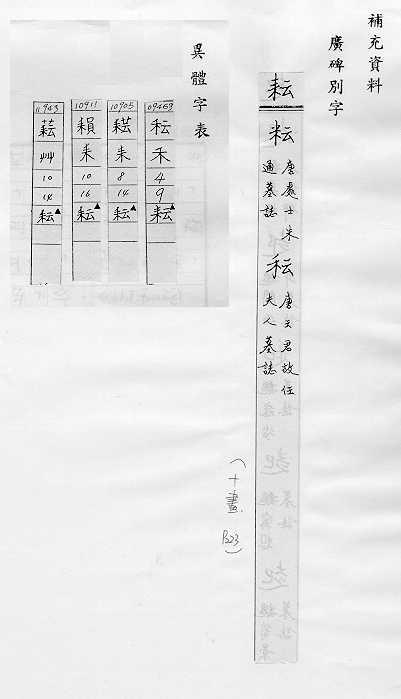 補充資料
廣碑別字
耘
𥹺 唐處士朱通墓誌 秐 唐王君故任夫人墓誌
(十畫 P.323)
異體字表
09469 秐 禾 4 9 耘▲
10905 耒 8 14 耘▲
10911 耒 10 16 耘▲
11943 艸 10 14 耘▲